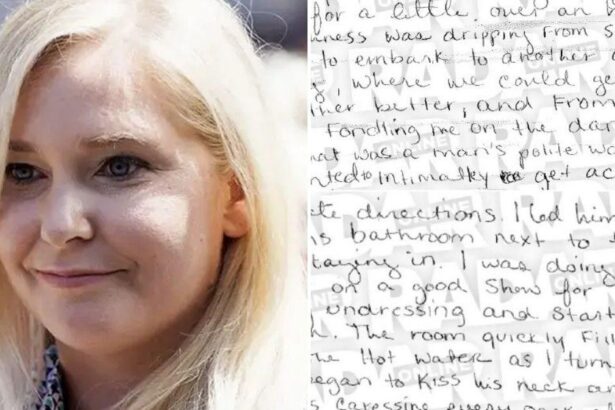 for a little over an
ness was dripping from s
to embark to another
where we could ge
her better, and From
Fondling me on the da
hat was a man's polite wa
nted to intimatley get ac
te directions. I led him
is bathroom next to
taying in. I was doing
on a good Show for
undressing and start
The room quickly Fill
he Hot Water as I turn
egan to Kiss his neck an
s caressing every
RADAR
ONLINE